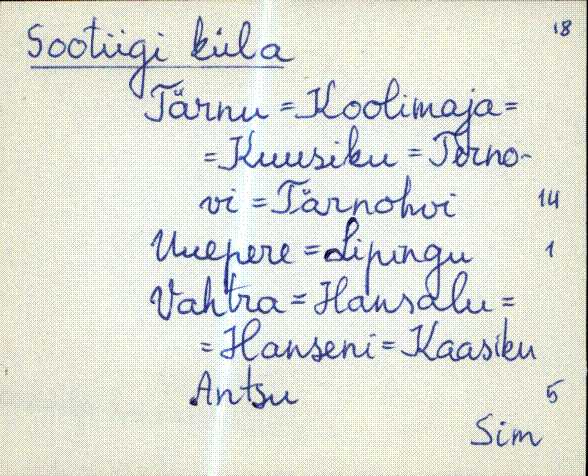 Sootiigi küla 18
Tärnu = Koolimaja =
= Kuusiku = Terno-
vi = Tärnohvi 14
Uuepere = Lipingu 1
Vahtra = Hansalu =
= Hanseni = Kaasiku
Antsu 5
Sim